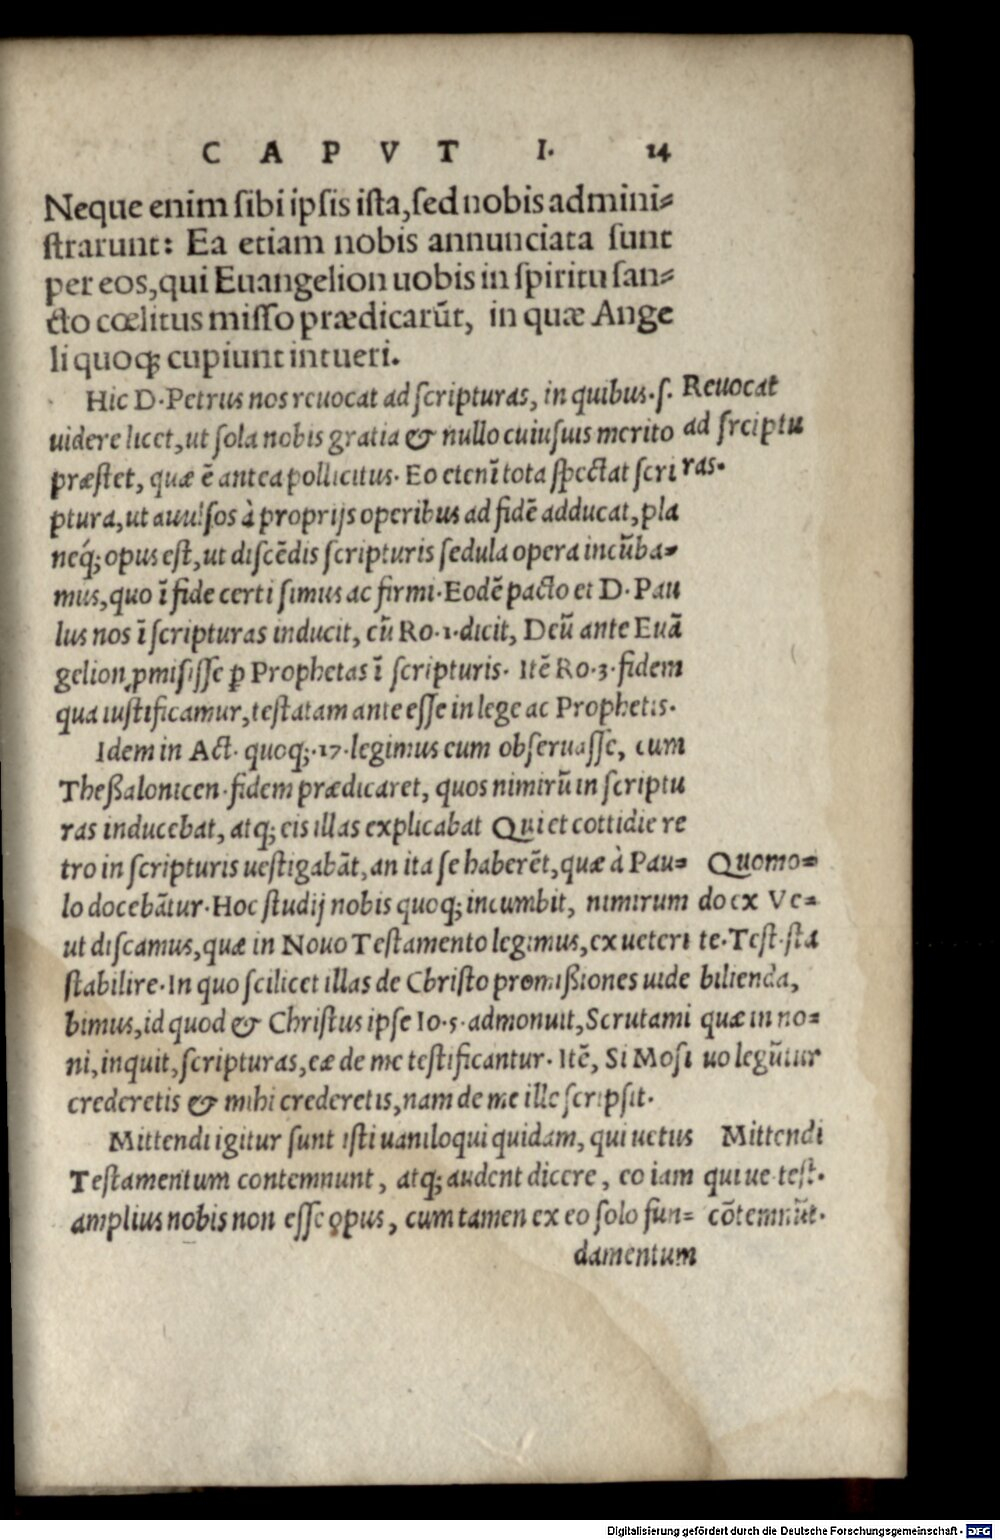 CAPVT I. 14
Neque enim sibi ipsis ista, sed nobis admini-
strarunt: Ea etiam nobis annunciata sunt
per eos, qui Euangelion uobis in spiritu san-
cto cœlitus misso prædicarūt, in quæ Ange
li quoq; cupiunt intueri.
Hic D. Petrus nos reuocat ad scripturas, in quibus. s.
uidere licet, ut sola nobis gratia & nullo cuiusuis merito
præstet, quæ ē antea pollicitus. Eo etenī tota spectat scri
ptura, ut auulsos à proprijs operibus ad fidē adducat, pla
neq́; opus est, ut discēdis scripturis sedula opera incūba-
mus, quo ī fide certi simus ac firmi. Eodē pacto et D. Pau
lus nos ī scripturas inducit, cū Ro. 1. dicit, Deū ante Euā
gelion ꝓmisisse ꝑ Prophetas ī scripturis. Itē Ro. 3. fidem
qua iustificamur, testatam ante esse in lege ac Prophetis.
Idem in Act. quoq;. 17. legimus eum obseruasse, cum
Theßalonicen. fidem prædicaret, quos nimirū in scriptu
ras inducebat, atq; eis illas explicabat Qui et cottidie re
tro in scripturis uestigabāt, an ita se haberēt, quæ à Pau-
lo docebātur. Hoc studij nobis quoq; incumbit, nimirum
ut discamus, quæ in Nouo Testamento legimus, ex ueteri
stabilire. In quo scilicet illas de Christo promißiones uide
bimus, id quod & Christus ipse Io. 5. admonuit, Scrutami
ni, inquit, scripturas, eæ de me testificantur. Itē, Si Mosi
crederetis & mihi crederetis, nam de me ille scripsit.
Mittendi igitur sunt isti uaniloqui quidam, qui uetus
Testamentum contemnunt, atq; audent dicere, eo iam
amplius nobis non esse opus, cum tamen ex eo solo fun-
damentum
Reuocat
ad srciptu
ras.
Quomo-
do ex Ve-
te. Test. sta
bilienda,
quæ in no-
uo legūtur
Mittendi
qui ue test.
cōtemnūt.
Digitalisierung gefördert durch die Deutsche Forschungsgemeinschaft - DFG